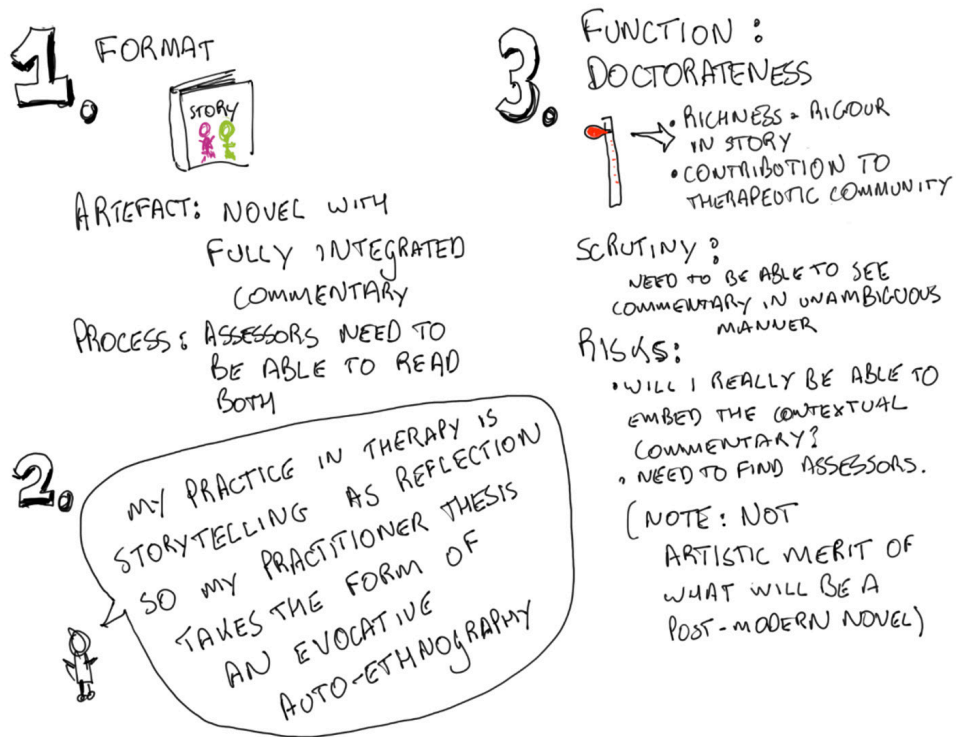 1. FORMAT
STORY
ARTEFACT: NOVEL WITH
FULLY INTEGRATED
COMMENTARY
PROCESS: ASSESSORS NEED TO
BE ABLE TO READ
BOTH
2.
MY PRACTICE IN THERAPY IS
STORYTELLING AS REFLECTION
SO MY PRACTITIONER THESIS
TAKES THE FORM OF
AN EVOCATIVE
AUTO-ETHNOGRAPHY
3. FUNCTION:
DOCTORATENESS
• RICHNESS + RIGOUR
IN STORY
• CONTRIBUTION TO
THERAPEUTIC COMMUNITY
SCRUTINY:
NEED TO BE ABLE TO SEE
COMMENTARY IN UNAMBIGUOUS
MANNER
RISKS:
• WILL I REALLY BE ABLE TO
EMBED THE CONTEXTUAL
COMMENTARY?
• NEED TO FIND ASSESSORS.
(NOTE: NOT
ARTISTIC MERIT OF
WHAT WILL BE A
POST-MODERN NOVEL)